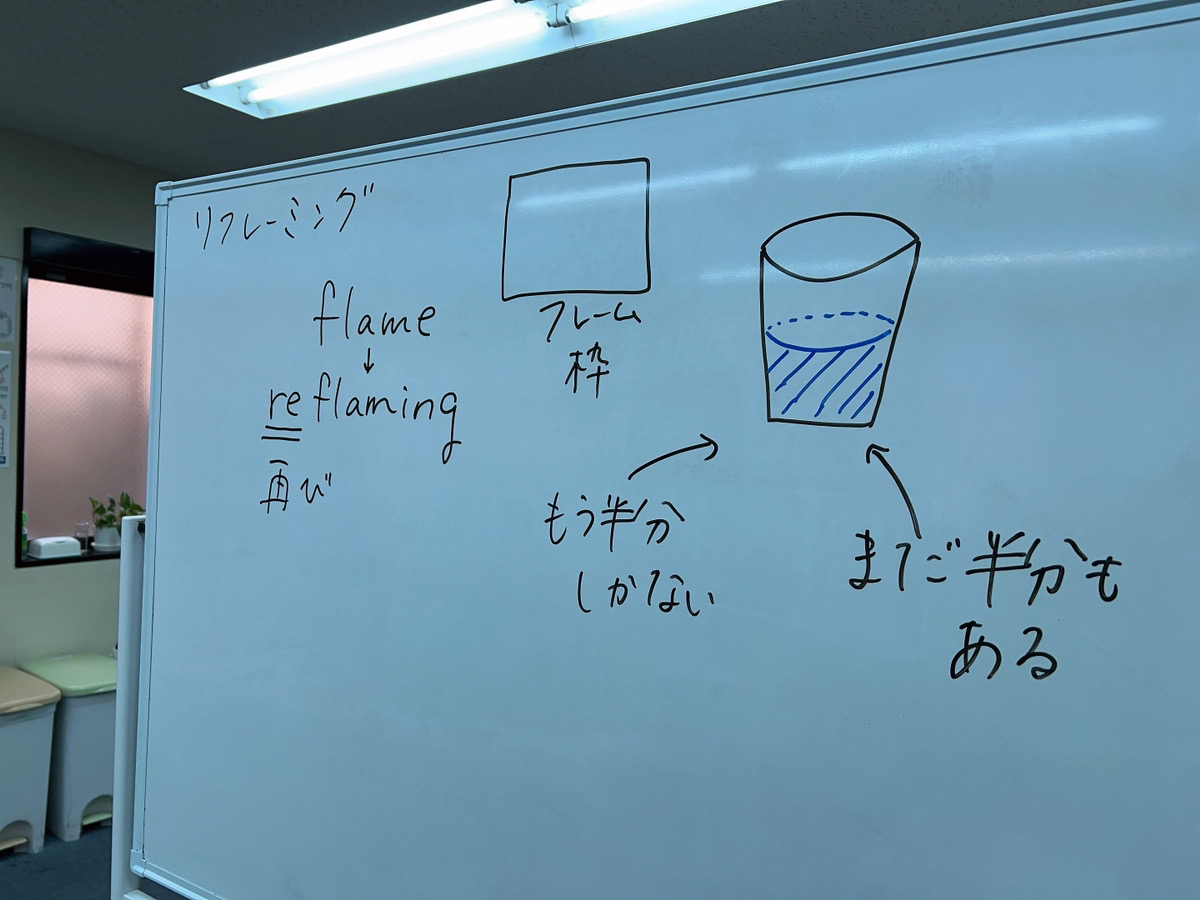 リフレーミング
flame
↓
reflaming
再び
フレーム
枠
もう半分
しかない
まだご半分も
ある